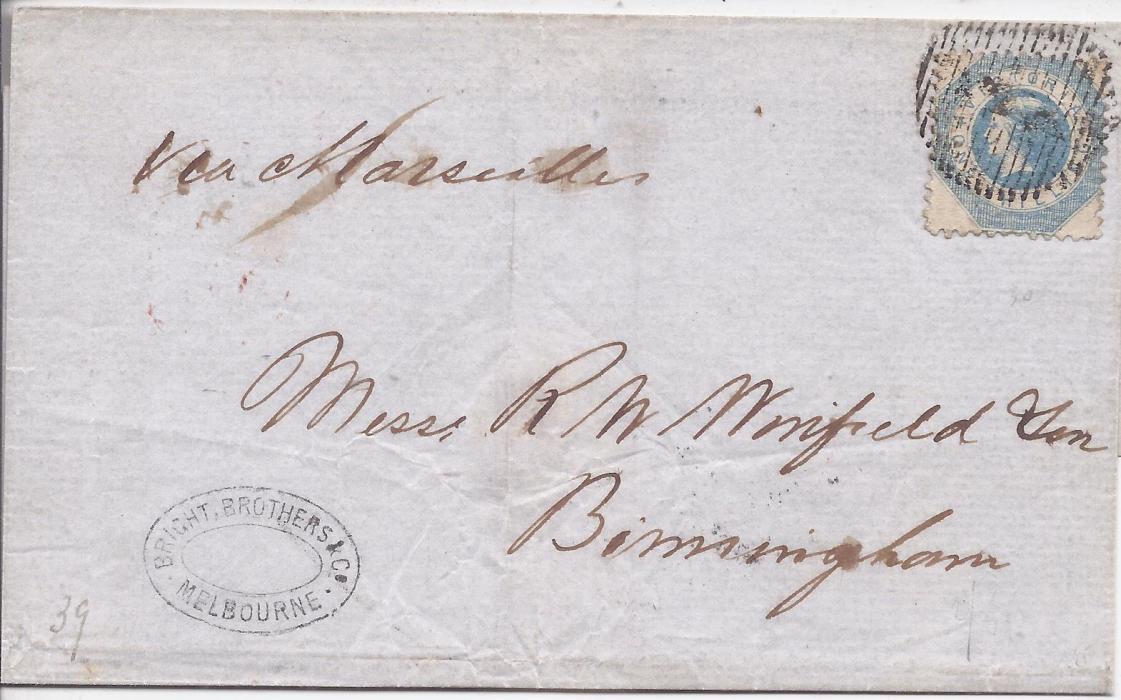 Via Marseilles
Messrs R W Winfield & Son
Birmingham
BRIGHT, BROTHERS & Co.
· MELBOURNE ·
39